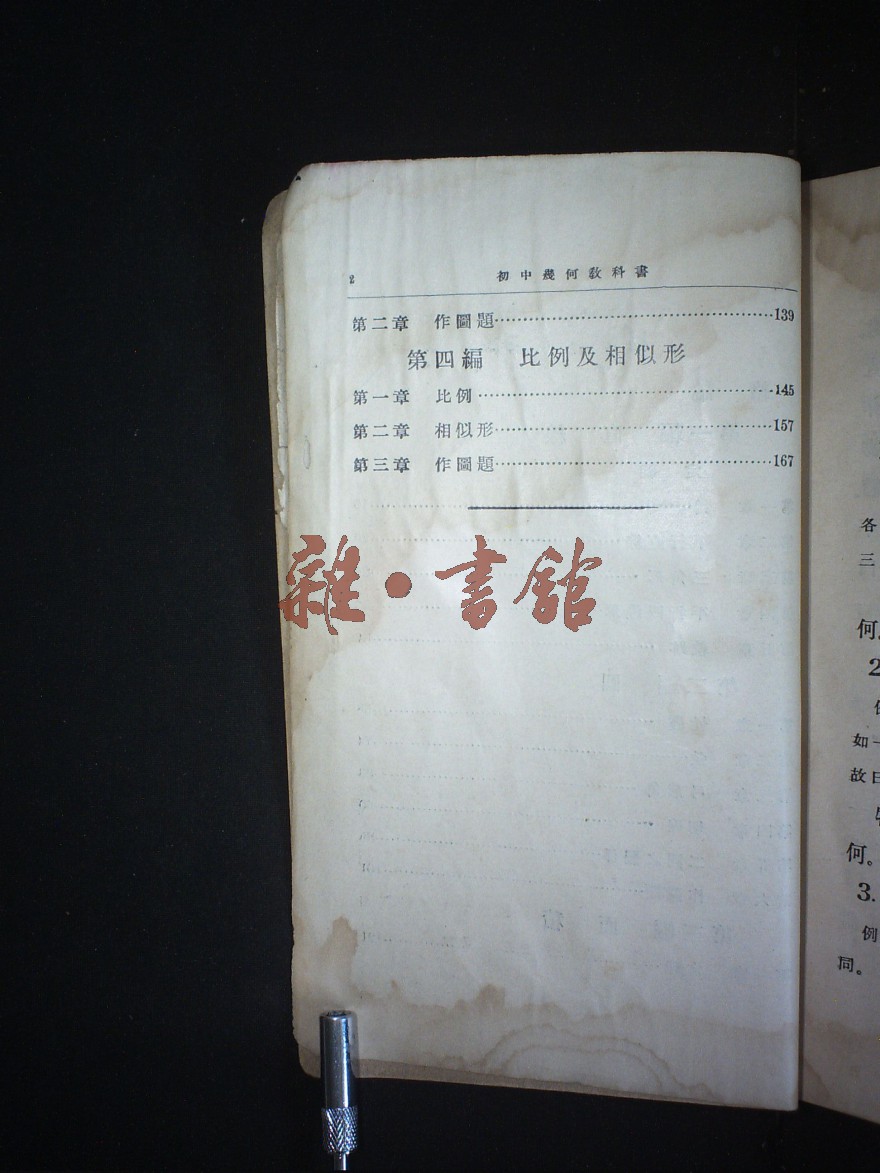 2 初中幾何教科書
第二章 作圖題………………………………………139
第四編 比例及相似形
第一章 比例………………………………………145
第二章 相似形………………………………………157
第三章 作圖題………………………………………167
雜·書館
各
三
何。
2
如一
故曰
何。
3.
例
同。